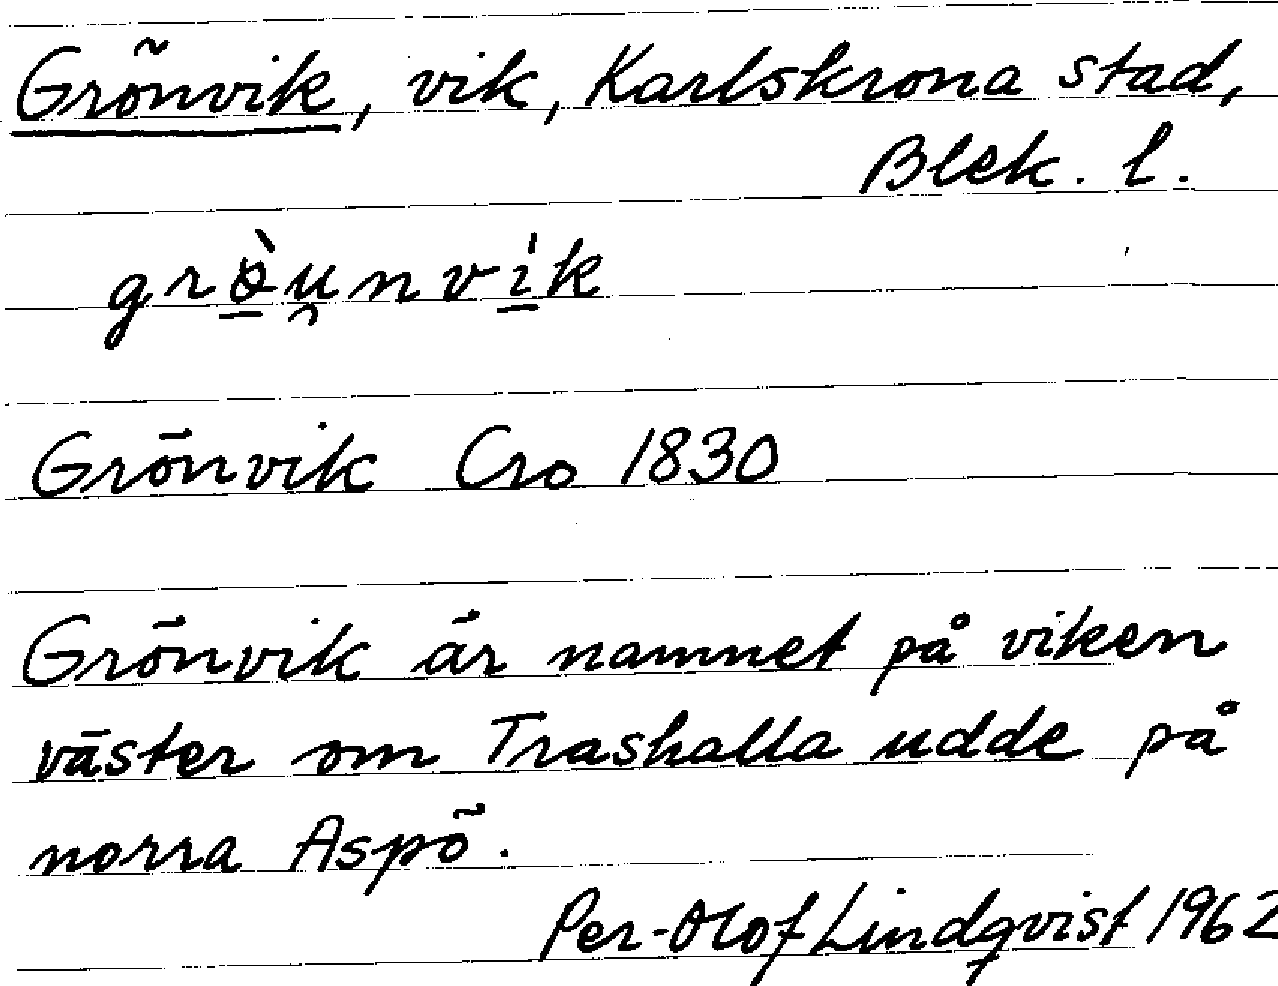 Grönvik, vik, Karlskrona stad,
Blek. l.
grø̀u̯nvi̍k
Grönvik Cro 1830
Grönvik är namnet på viken
väster om Traskalla udde på
norra Aspö.
Per-Olof Lindqvist 1962